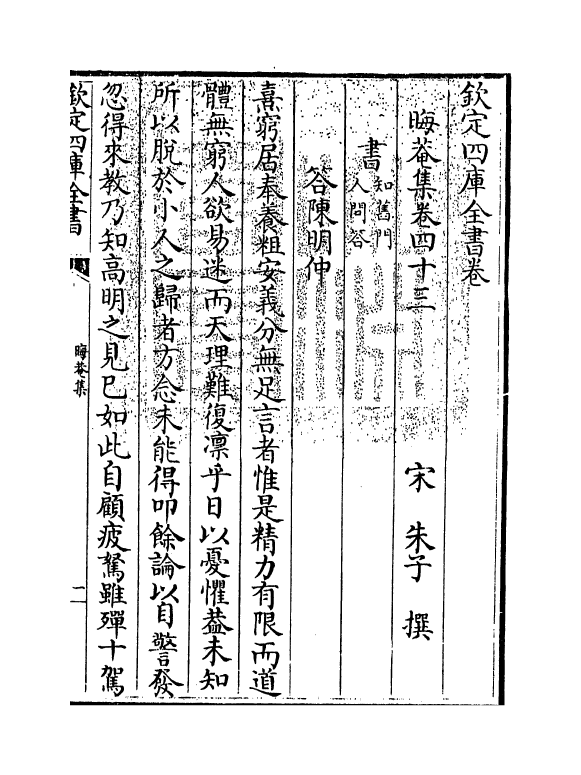 欽定四庫全書卷
晦菴集卷四十三
宋 朱子 撰
書
知舊門
人問答
答陳明仲
熹窮居奉養粗安義分無足言者惟是精力有限而道
體無窮人欲易迷而天理難復凛乎日以憂懼葢未知
所以脱於小人之歸者方念未能得叩餘論以自警發
忽得來教乃知高明之見已如此自顧疲駑雖殫十駕
欽定四庫全書
晦菴集
二